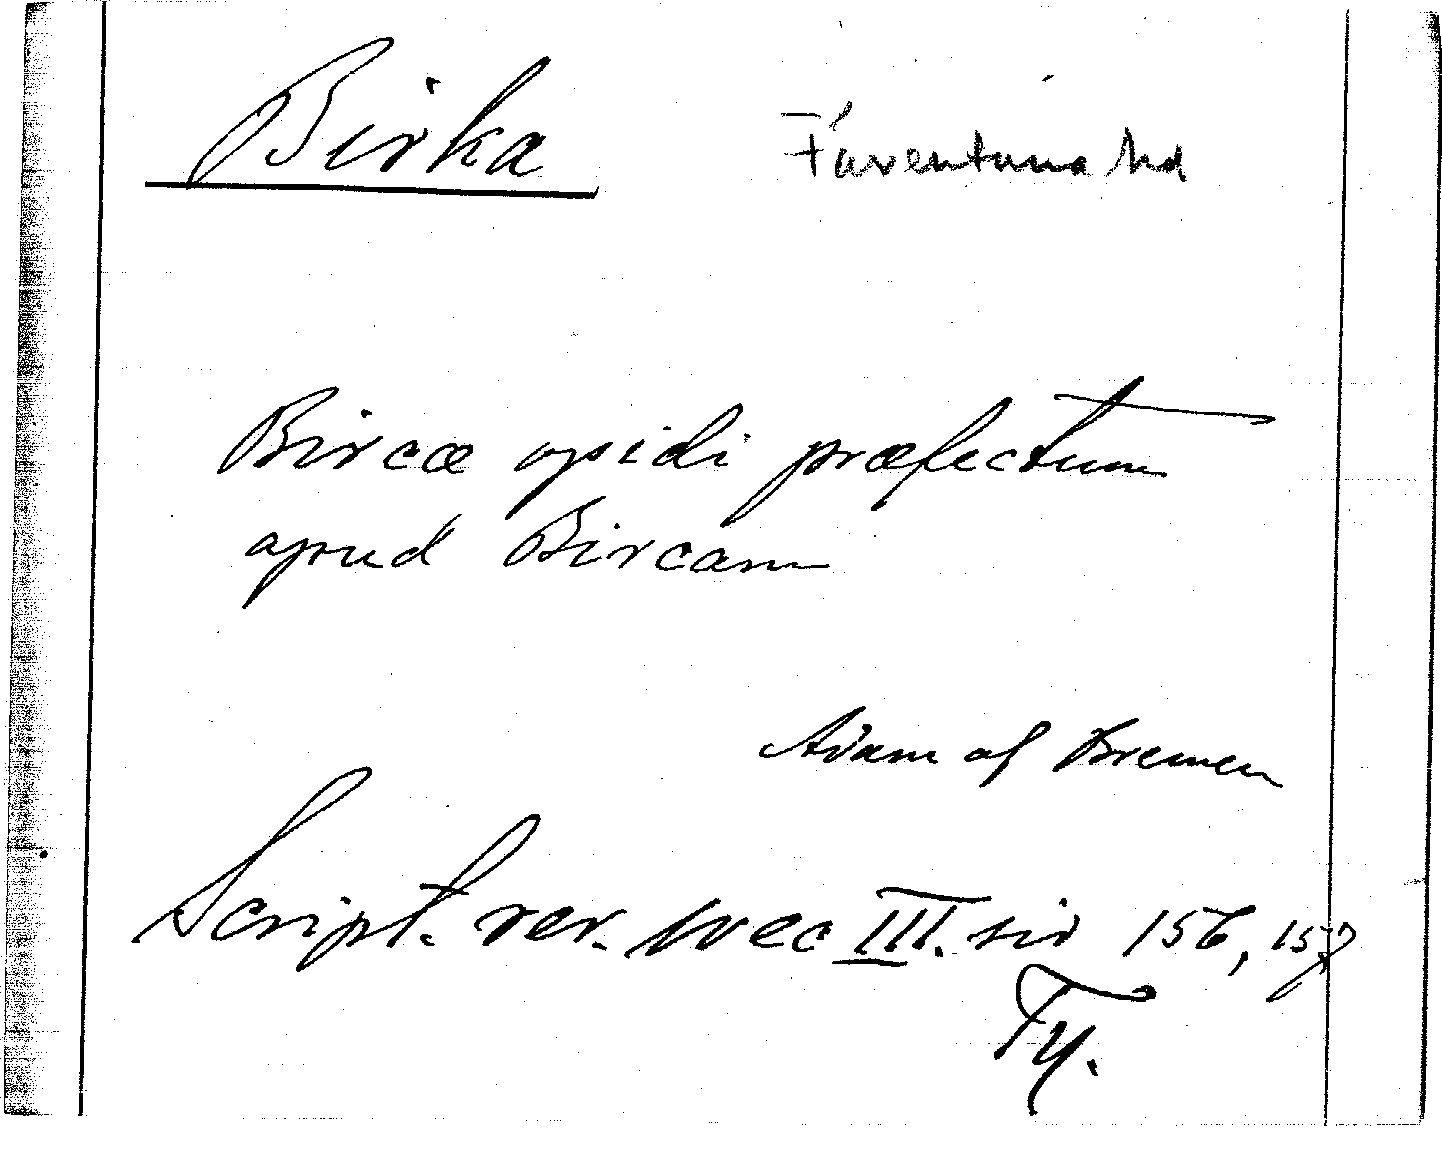 Birka Färentuna hd
Bircæ opidi præfectum
apud Bircam
Adam af Bremen
Script. rer. svec III. sid 156, 157
Ty.